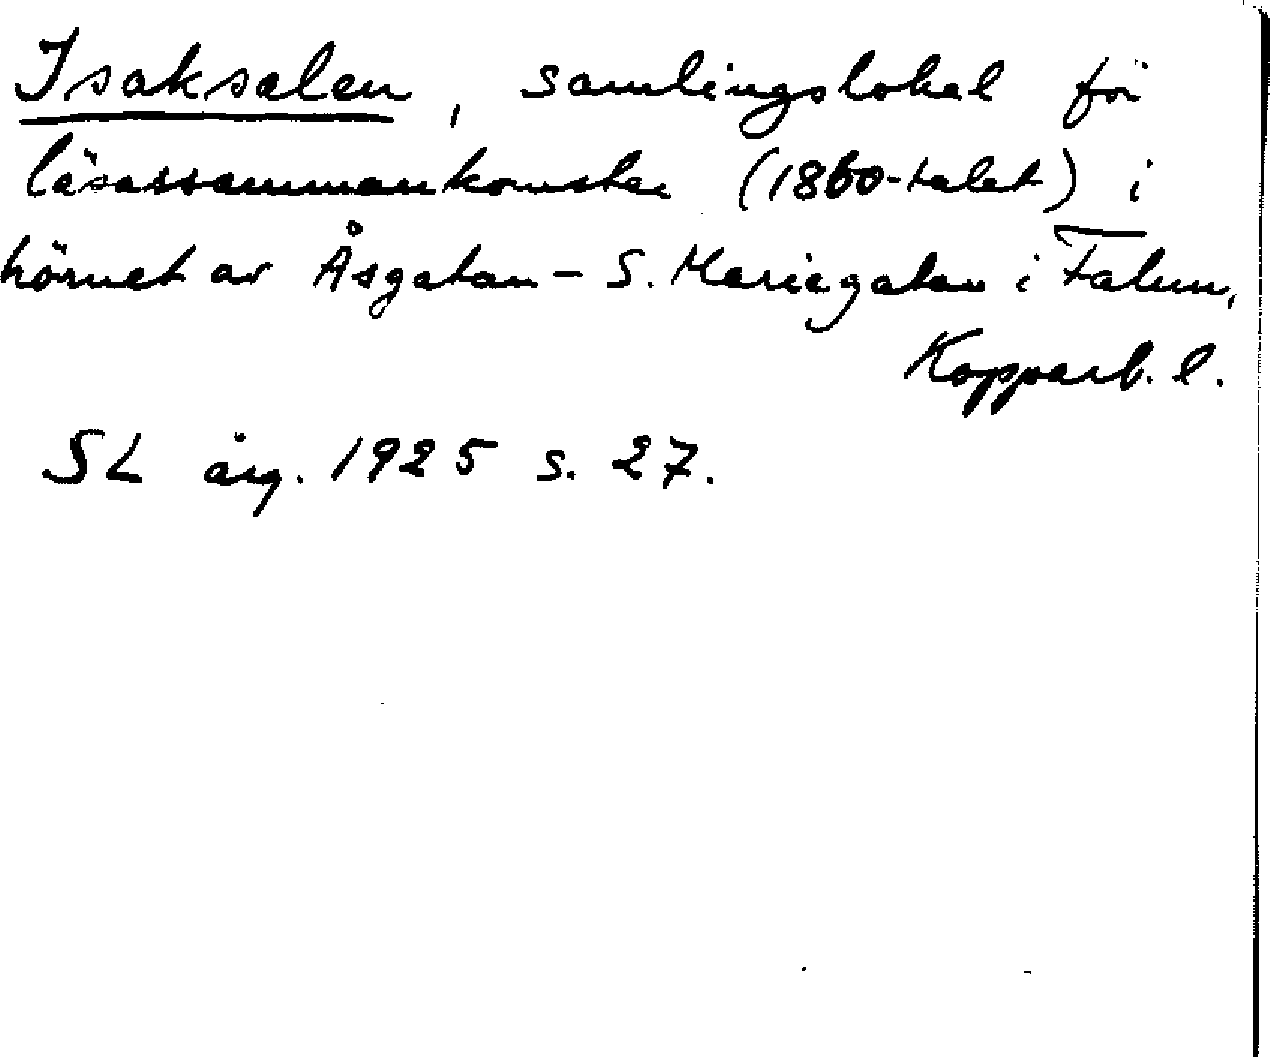 Isaksalen, samlingslokal för
läsassammankomster (1860-talet) i
hörnet av Åsgatan - S. Mariegatan i Falun,
Kopparb. l.
SL årg. 1925 s. 27.